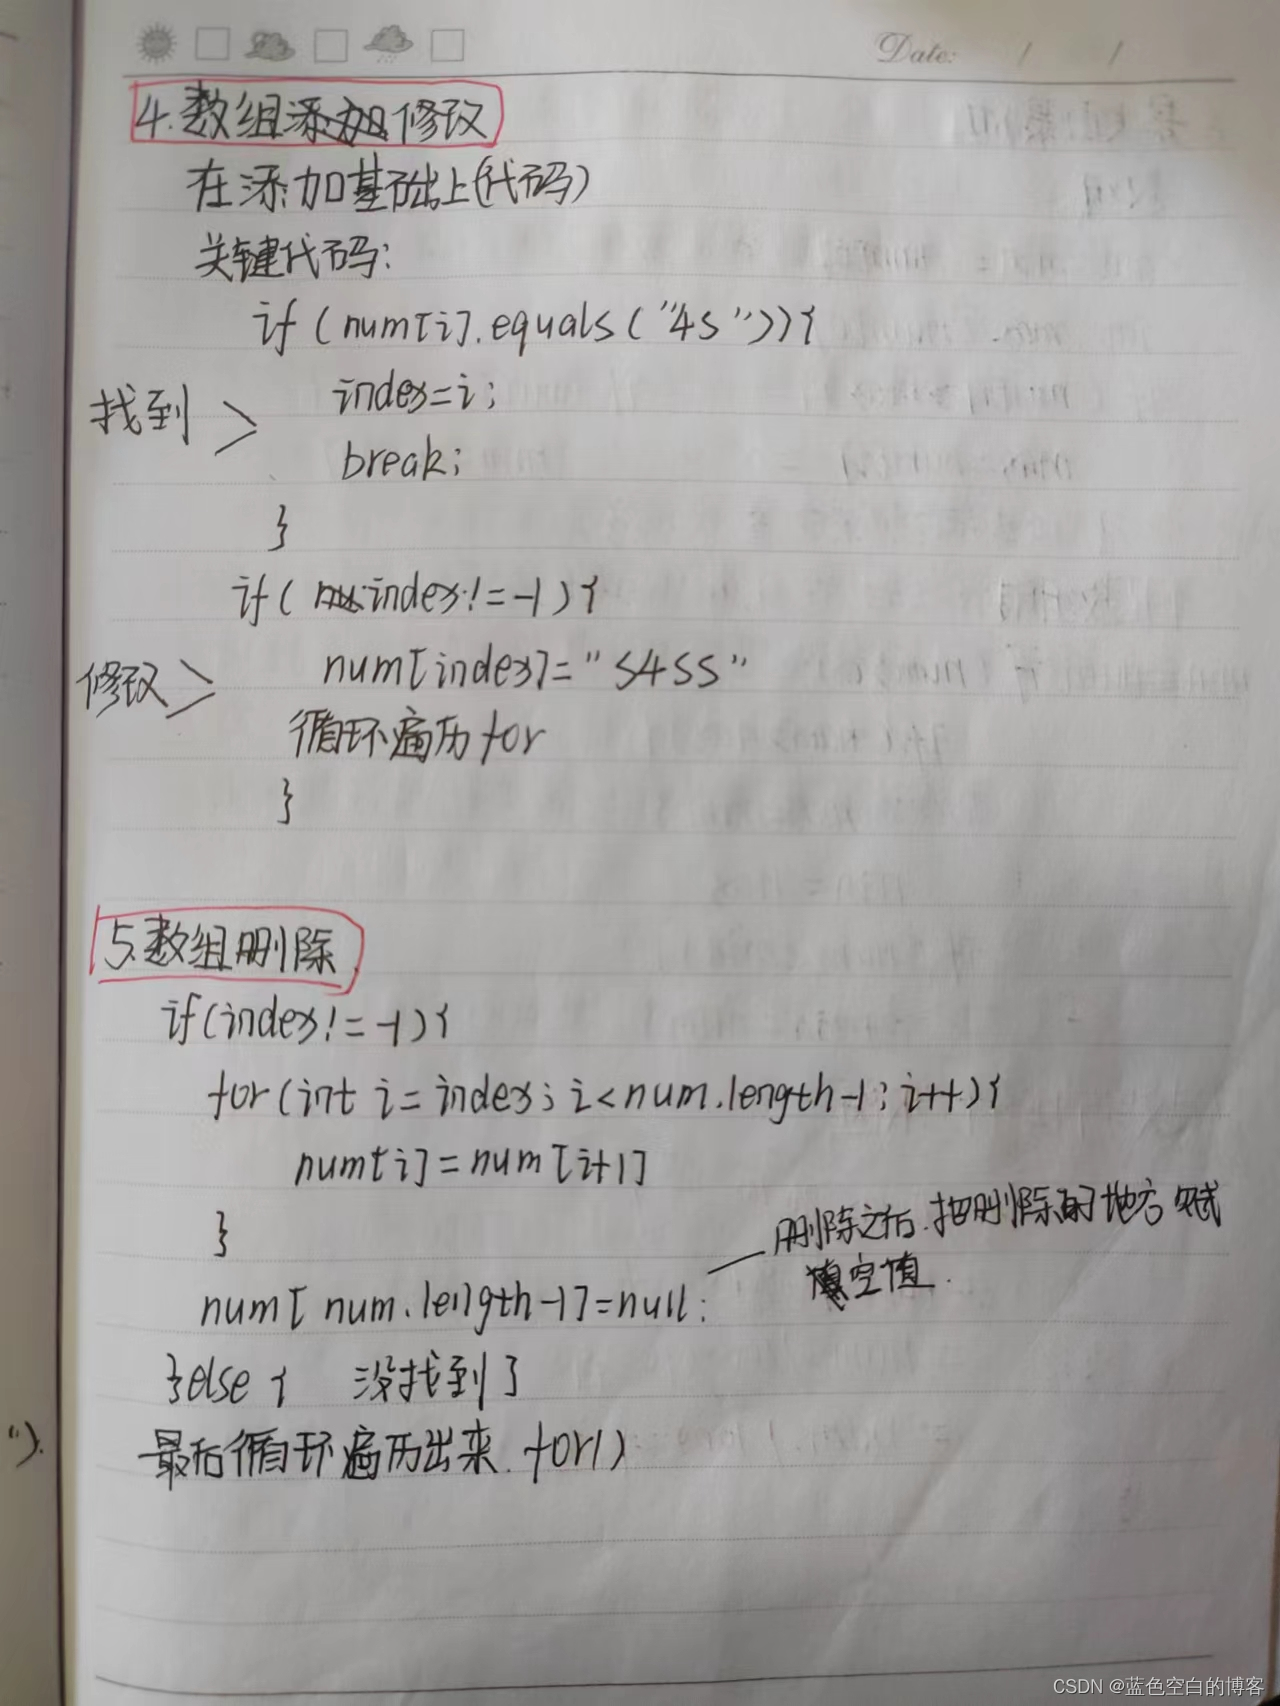 Date: / /
4.数组添加修改
在添加基础上(代码)
关键代码:
if(num[i].equals("4S")){
找到 > index=i;
break;
}
if(index!=-1){
修改 > num[index]="S4SS"
循环遍历for
}
5.数组删除
if(index!=-1){
for(int i=index;i<num.length-1;i++){
num[i]=num[i+1]
}
删除之后.把删除的地方赋
空值.
num[num.length-1]=null;
}else{ 没找到}
最后循环遍历出来.for()
").
CSDN @蓝色空白的博客